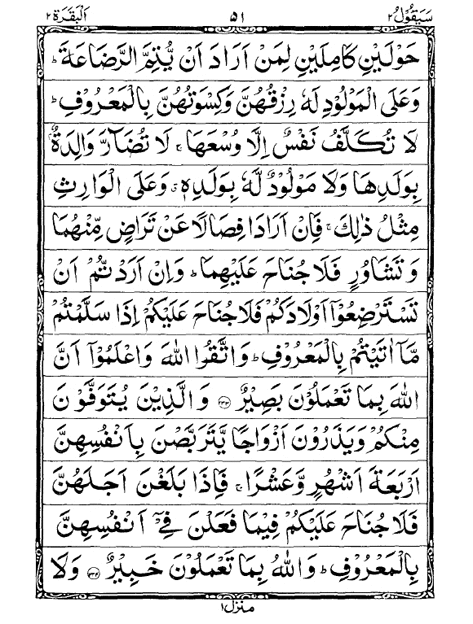 سَيَقُوْلُ ٢ ٥١ اَلْبَقَرَة ٢
حَوْلَيْنِ كَامِلَيْنِ لِمَنْ اَرَادَ اَنْ يُّتِمَّ الرَّضَاعَةَ ؕ
وَعَلَى الْمَوْلُوْدِ لَهٗ رِزْقُهُنَّ وَكِسْوَتُهُنَّ بِالْمَعْرُوْفِ ؕ
لَا تُكَلَّفُ نَفْسٌ اِلَّا وُسْعَهَا ۚ لَا تُضَآرَّ وَالِدَةٌۢ
بِوَلَدِهَا وَلَا مَوْلُوْدٌ لَّهٗ بِوَلَدِهٖ ۗ وَعَلَى الْوَارِثِ
مِثْلُ ذٰلِكَ ۚ فَاِنْ اَرَادَا فِصَالًا عَنْ تَرَاضٍ مِّنْهُمَا
وَتَشَاوُرٍ فَلَا جُنَاحَ عَلَيْهِمَا ؕ وَاِنْ اَرَدْتُّمْ اَنْ
تَسْتَرْضِعُوْۤا اَوْلَادَكُمْ فَلَا جُنَاحَ عَلَيْكُمْ اِذَا سَلَّمْتُمْ
مَّاۤ اٰتَيْتُمْ بِالْمَعْرُوْفِ ؕ وَاتَّقُوا اللّٰهَ وَاعْلَمُوْۤا اَنَّ
اللّٰهَ بِمَا تَعْمَلُوْنَ بَصِيْرٌ ﴿٢٣٣﴾ وَالَّذِيْنَ يُتَوَفَّوْنَ
مِنْكُمْ وَيَذَرُوْنَ اَزْوَاجًا يَّتَرَبَّصْنَ بِاَنْفُسِهِنَّ
اَرْبَعَةَ اَشْهُرٍ وَّعَشْرًا ۚ فَاِذَا بَلَغْنَ اَجَلَهُنَّ
فَلَا جُنَاحَ عَلَيْكُمْ فِيْمَا فَعَلْنَ فِيْۤ اَنْفُسِهِنَّ
بِالْمَعْرُوْفِ ؕ وَاللّٰهُ بِمَا تَعْمَلُوْنَ خَبِيْرٌ ﴿٢٣٤﴾ وَلَا
منزل ١